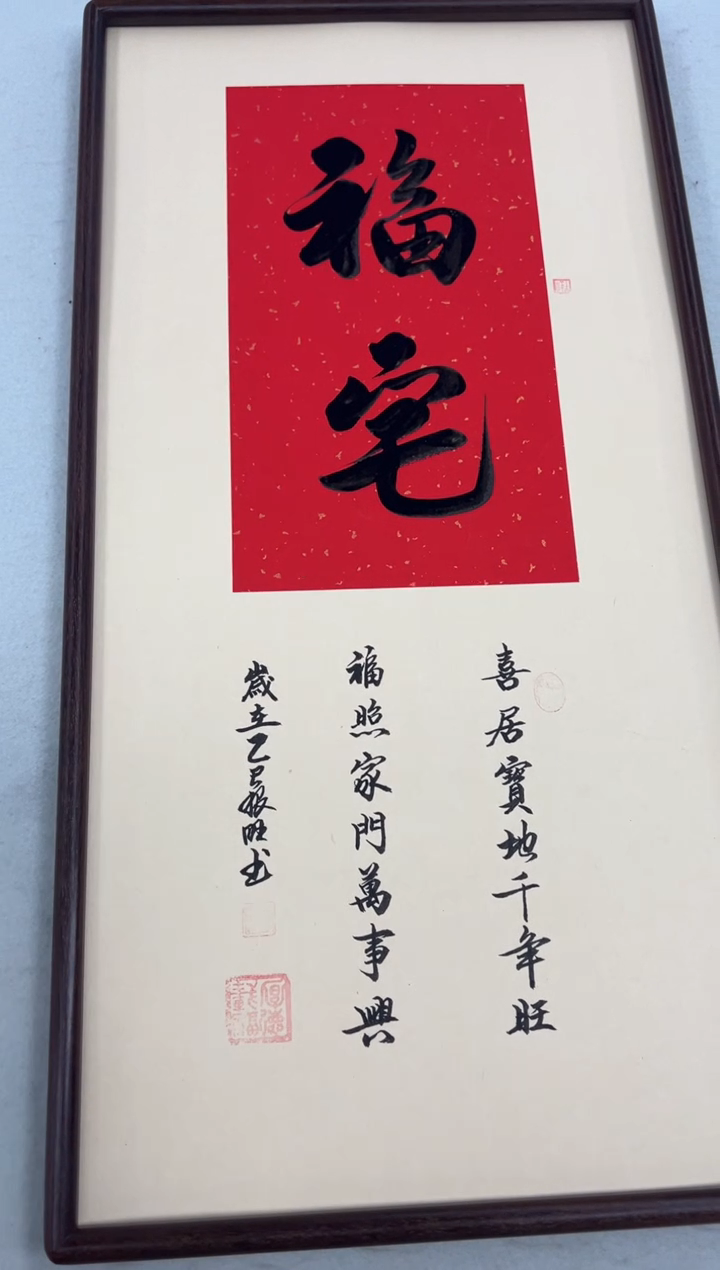 福宅
喜居寶地千年旺
福照家門萬事興
歲在乙巳振旺书